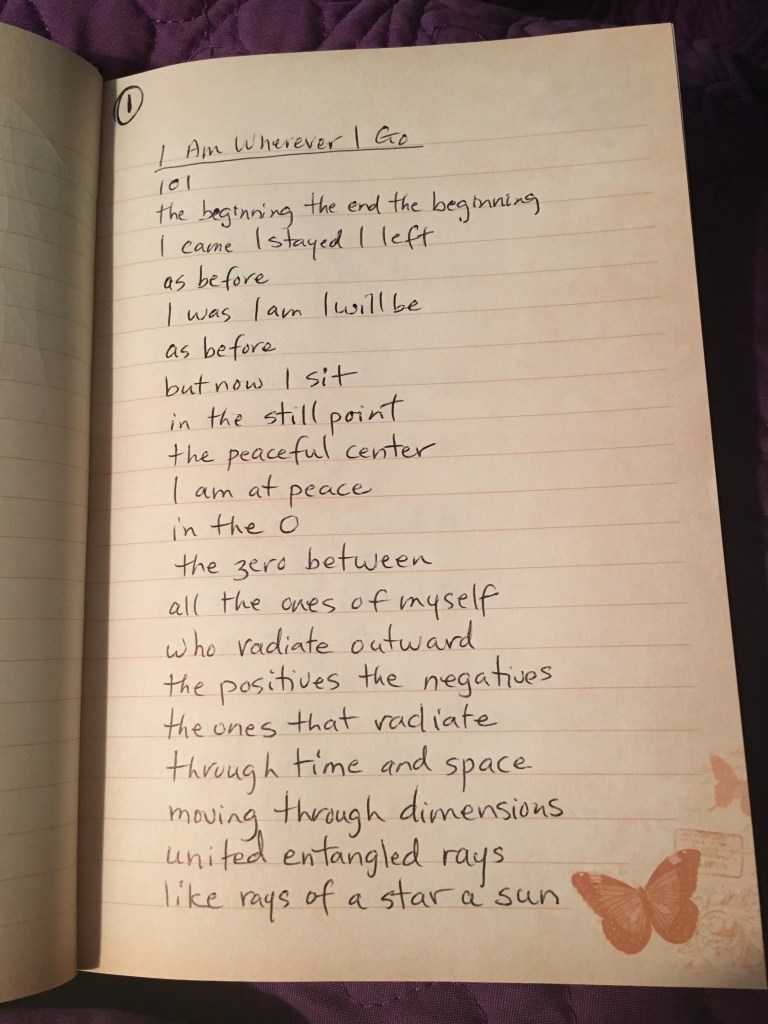 1
I Am Wherever I Go
101
the beginning the end the beginning
I came I stayed I left
as before
I was I am I will be
as before
but now I sit
in the still point
the peaceful center
I am at peace
in the O
the zero between
all the ones of myself
who radiate outward
the positives the negatives
the ones that radiate
through time and space
moving through dimensions
united entangled rays
like rays of a star a sun